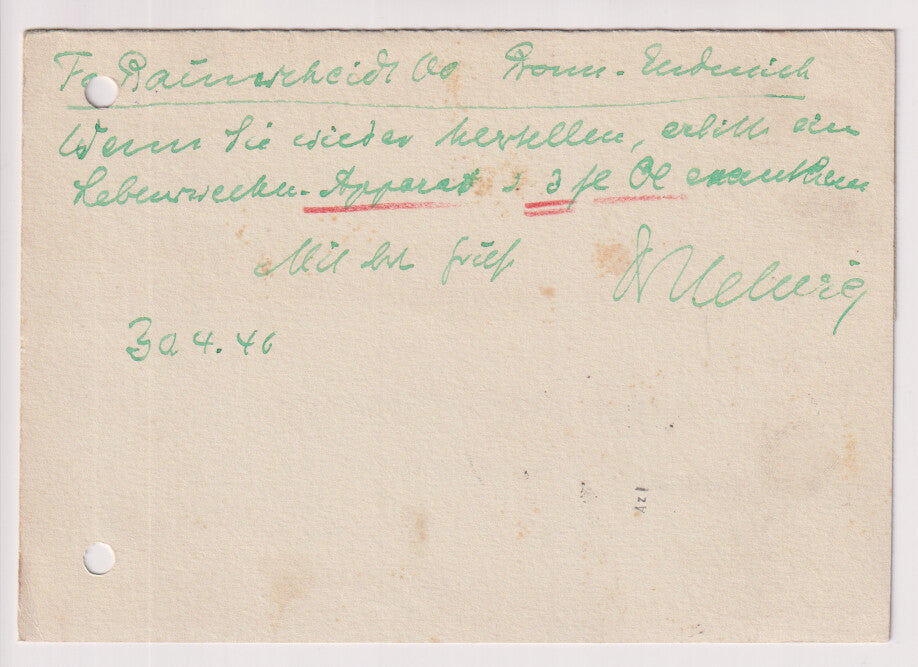 Fa Baunscheidt Co Bonn-Endenich
Wenn Sie wieder herstellen, erbitte ein
Lebenswecker-Apparat u 3 fl Ol exanthem
Mit bst Gruß
Dr
30 4. 46